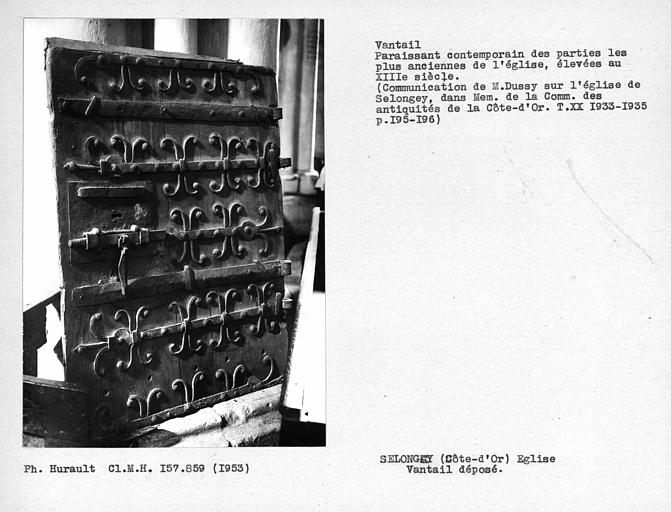 Vantail
Paraissant contemporain des parties les
plus anciennes de l'église, élevées au
XIIIe siècle.
(Communication de M.Dussy sur l'église de
Selongey, dans Mem. de la Comm. des
antiquités de la Côte-d'Or. T.XX I933-I935
p.I95-I96)
Ph. Hurault Cl.M.H. I57.859 (I953)
SELONGEY (Côte-d'Or) Eglise
Vantail déposé.